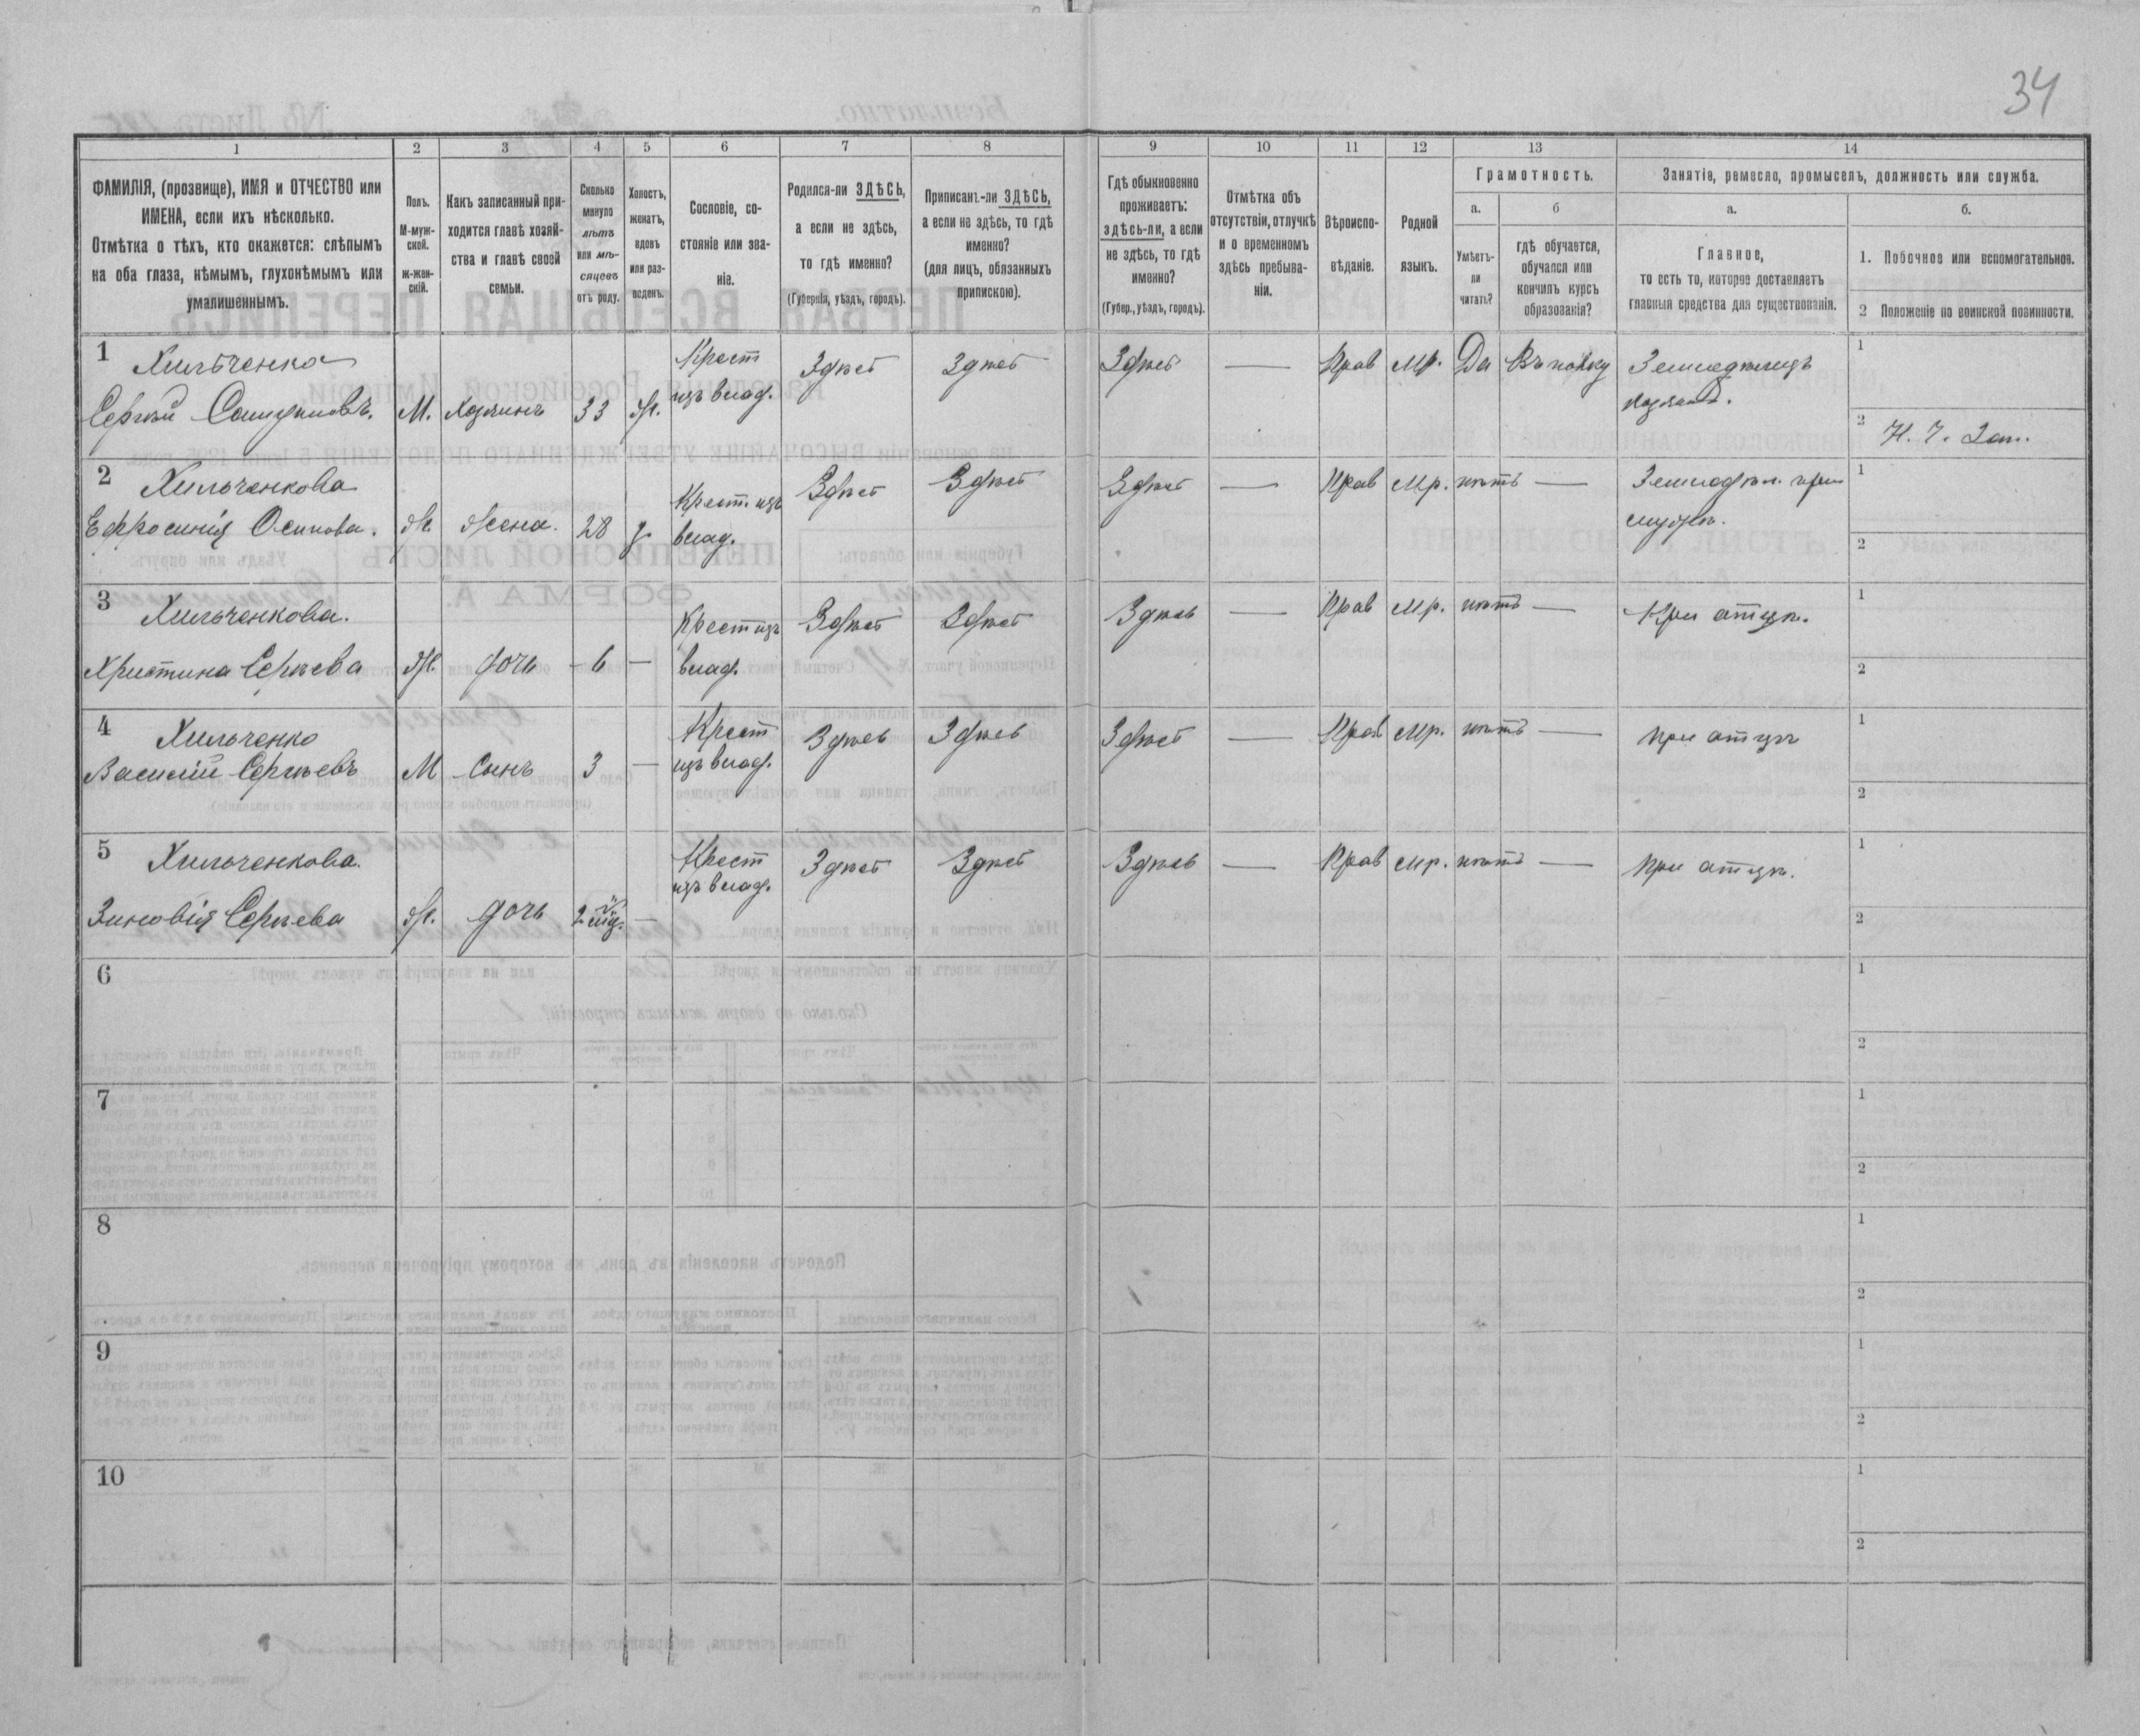 34
1 2 3 4 5 6 7 8 9 10 11 12 13 14
ФАМИЛІЯ, (прозвище), ИМЯ и ОТЧЕСТВО или
ИМЕНА, если ихъ нѣсколько.
Отмѣтка о тѣхъ, кто окажется: слѣпымъ
на оба глаза, нѣмымъ, глухонѣмымъ или
умалишеннымъ.
Полъ.
М-муж-
ской.
ж-жен-
скій.
Какъ записанный при-
ходится главѣ хозяй-
ства и главѣ своей
семьи.
Сколько
минуло
лѣтъ
или мѣ-
сяцевъ
отъ роду.
Холостъ,
женатъ,
вдовъ
или раз-
веденъ.
Сословіе, со-
стояніе или зва-
ніе.
Родился-ли ЗДѢСЬ,
а если не здѣсь,
то гдѣ именно?
(Губернія, уѣздъ, городъ).
Приписанъ-ли ЗДѢСЬ,
а если не здѣсь, то гдѣ
именно?
(для лицъ, обязанныхъ
припискою).
Гдѣ обыкновенно
проживаетъ:
здѣсь-ли, а если
не здѣсь, то гдѣ
именно?
(Губер., уѣздъ, городъ).
Отмѣтка объ
отсутствіи, отлучкѣ
и о временномъ
здѣсь пребыва-
ніи.
Вѣроиспо-
вѣданіе.
Родной
языкъ.
Грамотность.
а.
Умѣетъ-
ли
читать?
б
гдѣ обучается,
обучался или
кончилъ курсъ
образованія?
Занятіе, ремесло, промыселъ, должность или служба.
а.
Главное,
то есть то, которое доставляетъ
главныя средства для существованія.
б.
1. Побочное или вспомогательное.
2 Положеніе по воинской повинности.
1 Хильченко Крест Здѣсь Здѣсь Здѣсь — Прав Мр. Да Въ полку Земледѣлецъ 1
Сергѣй М. Хозяинъ 33 ж. изъ влад. хозяинъ. 2 Н. Ч. Зап.
2 Хильченкова Крест. изъ Здѣсь Здѣсь Здѣсь — Прав Мр. нѣтъ — Земледѣл. при 1
Ефросинія Осипова. ж. жена. 28 з. влад. мужѣ. 2
3 Хильченкова. Крест изъ Здѣсь Здѣсь Здѣсь — Прав Мр. нѣтъ — При отцѣ. 1
Христина Сергѣева ж. дочь 6 — влад. 2
4 Хильченко Крест Здѣсь Здѣсь Здѣсь — Прав Мр. нѣтъ — при отцѣ 1
Василій Сергѣевъ М Сынъ 3 — изъ влад. 2
5 Хильченкова. Крест Здѣсь Здѣсь Здѣсь — Прав Мр. нѣтъ — при отцѣ. 1
Зиновія Сергѣева ж. дочь 2 — изъ влад. 2
6 1
2
7 1
2
8 1
2
9 1
2
10 1
2